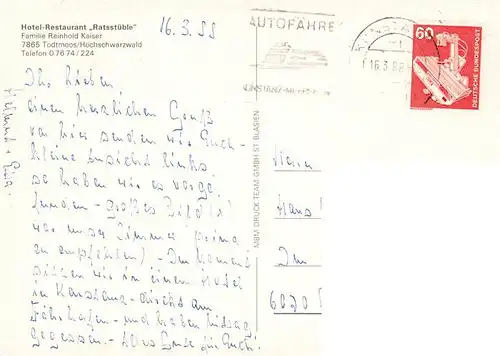 Hotel-Restaurant „Ratsstüble"
Familie Reinhold Kaiser
7865 Todtmoos/Hochschwarzwald
Telefon 0 76 74 / 224
16.3.88
AUTOFÄHRE
KONSTANZ-MEERSBURG
16.3.88
60
DEUTSCHE BUNDESPOST
Ihr Lieben,
einen herzlichen Gruß
von hier senden wir Euch -
kleine Ansicht links
so haben wir es vorge-
funden - großes Bild ist
unser Zimmer (prima
zu empfehlen) - Im Moment
sitzen wir in einem Hotel
in Konstanz - direkt am
Fährhafen - und haben Mittag
gegessen. - Alles Gute für Euch!
Helmut +
MBM DRUCK TEAM GMBH ST. BLASIEN
Hans
Im